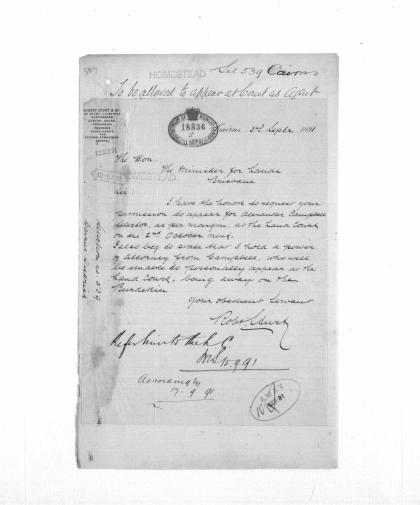 HOMESTEAD
Sel 539 Cairns
To be allowed to appear at Court as Agent
18836
Cairns 3rd Septr 1891
The Hon:
The Minister for Lands
Brisbane
Sir:
HOMESTEAD
I have the honor to request your
permission to appear for Alexander Campbell
selector, as per margin, at the Land Court
on the 2nd October next.
I also beg to state that I hold a power
of attorney from Campbell, who will
be unable to personally appear at the
Land Court, being away on the
Burdekin
Your obedient Servant
Selection No 539
Cairns District
Refer him to the
15.9.91
According by
17.9.91